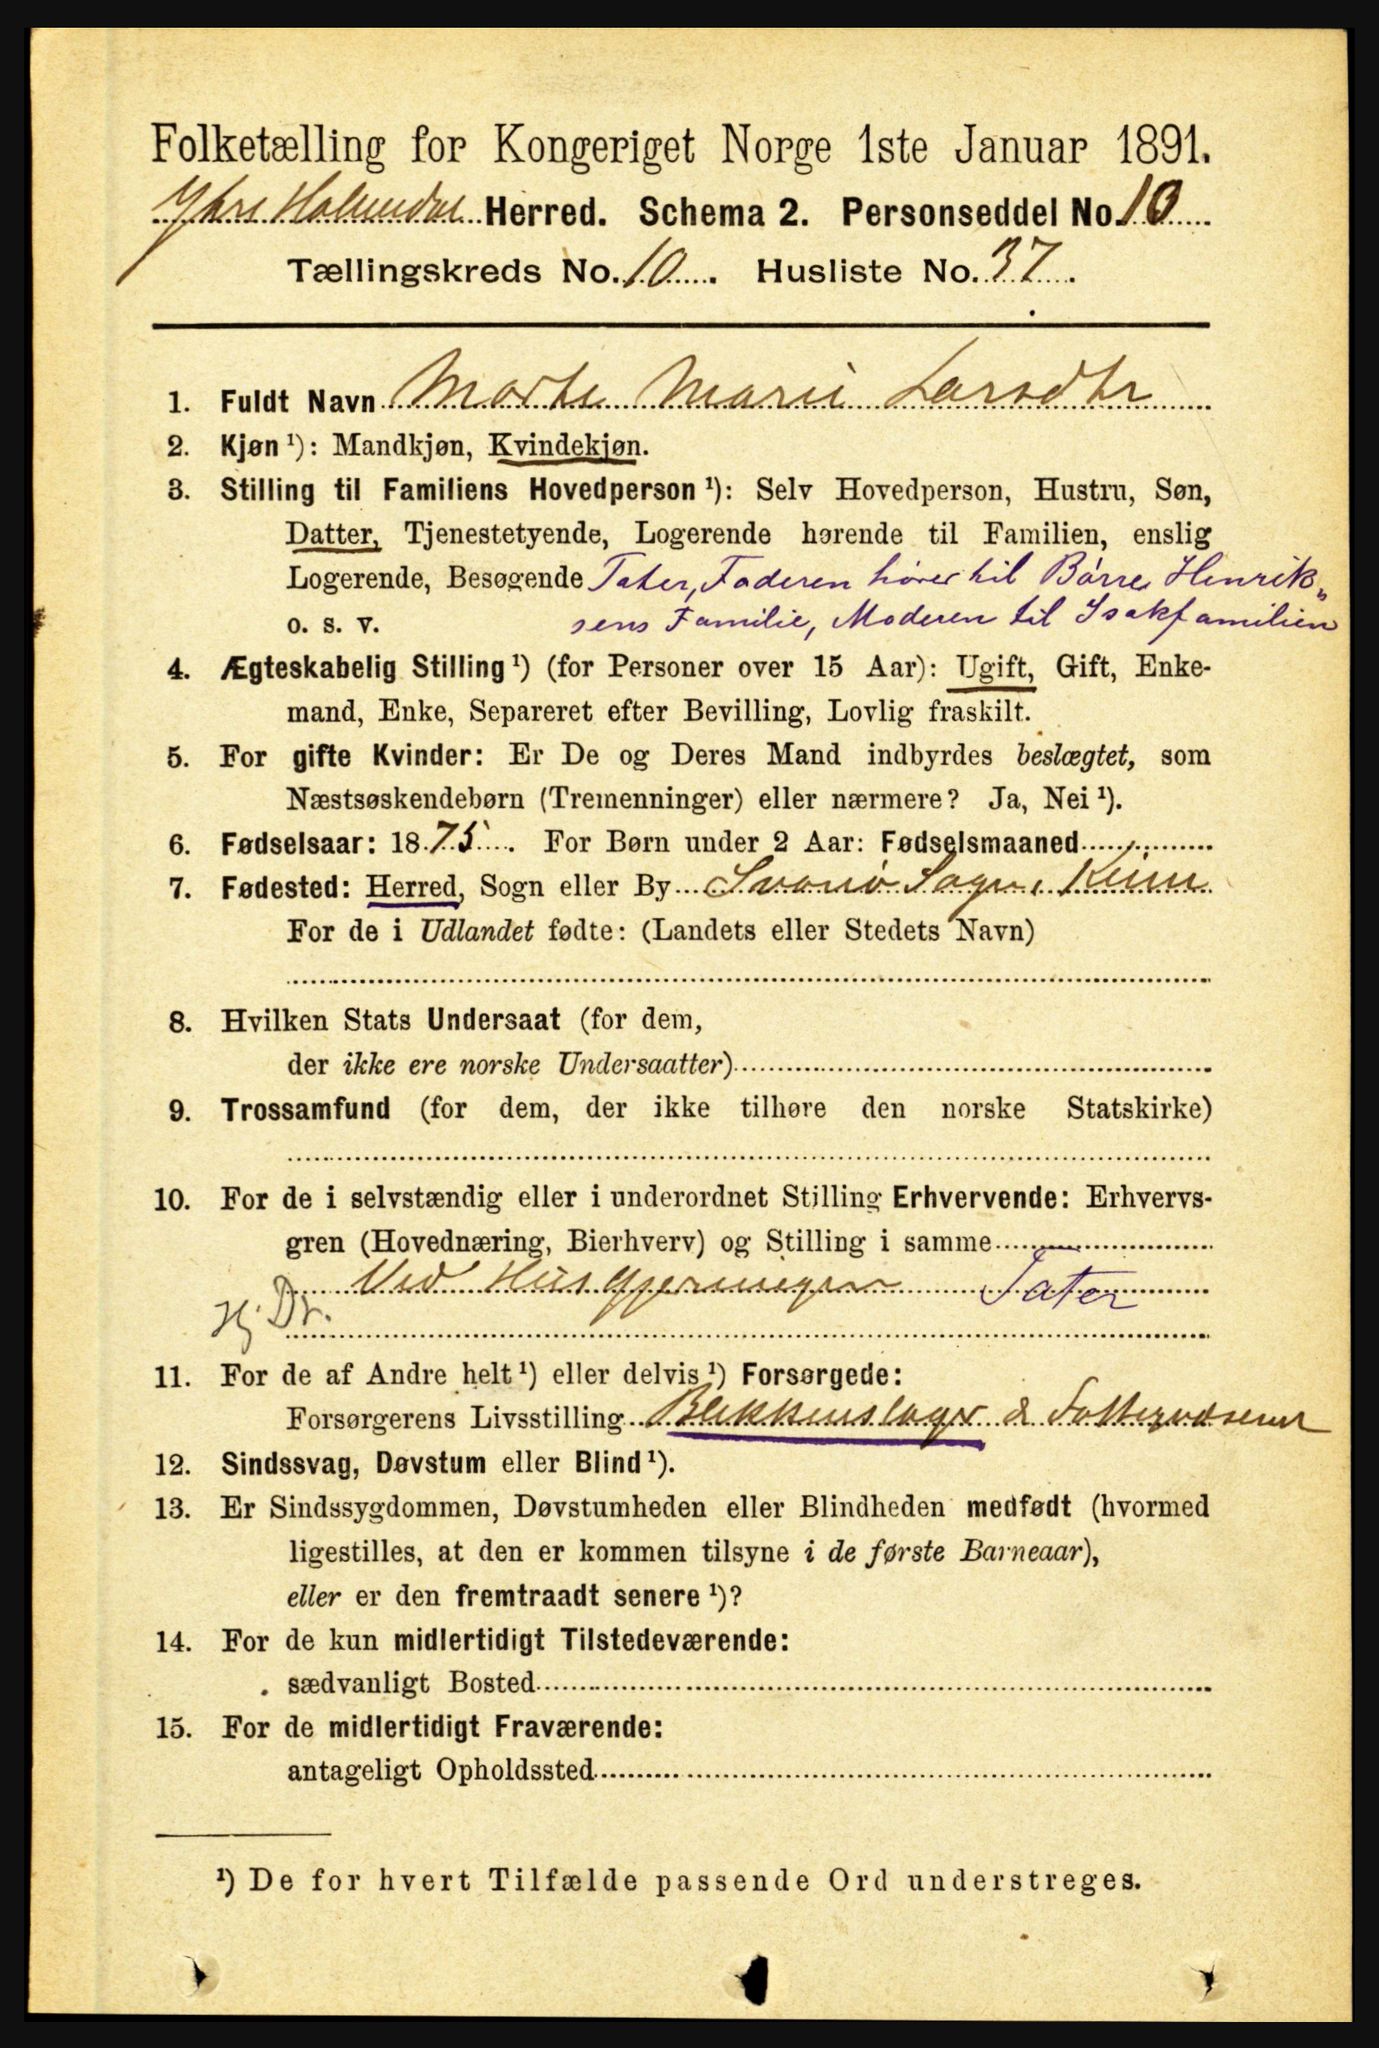 Folketælling for Kongeriget Norge 1ste Januar 1891.
Ytre Holmedal Herred. Schema 2. Personseddel No. 10
Tællingskreds No. 10. Husliste No. 37.
1. Fuldt Navn Marte Marie Larsdtr
2. Kjøn ¹): Mandkjøn, Kvindekjøn.
3. Stilling til Familiens Hovedperson ¹): Selv Hovedperson, Hustru, Søn,
Datter, Tjenestetyende, Logerende hørende til Familien, enslig
Logerende, Besøgende Tater, Faderen hører til Börre Henrik„
o. s. v. sens Familie, Moderen til Isakfamilien
4. Ægteskabelig Stilling ¹) (for Personer over 15 Aar): Ugift, Gift, Enke-
mand, Enke, Separeret efter Bevilling, Lovlig fraskilt.
5. For gifte Kvinder: Er De og Deres Mand indbyrdes beslægtet, som
Næstsøskendebørn (Tremenninger) eller nærmere? Ja, Nei ¹).
6. Fødselsaar: 1875. For Børn under 2 Aar: Fødselsmaaned
7. Fødested: Herred, Sogn eller By Svanö Sogn, Kinn
For de i Udlandet fødte: (Landets eller Stedets Navn)
8. Hvilken Stats Undersaat (for dem,
der ikke ere norske Undersaatter)
9. Trossamfund (for dem, der ikke tilhøre den norske Statskirke)
10. For de i selvstændig eller i underordnet Stilling Erhvervende: Erhvervs-
gren (Hovednæring, Bierhverv) og Stilling i samme
Ved Husgjerninger Tater
Hj. Dr.
11. For de af Andre helt ¹) eller delvis ¹) Forsørgede:
Forsørgerens Livsstilling Blikkenslager &
12. Sindssvag, Døvstum eller Blind ¹).
13. Er Sindssygdommen, Døvstumheden eller Blindheden medfødt (hvormed
ligestilles, at den er kommen tilsyne i de første Barneaar),
eller er den fremtraadt senere ¹)?
14. For de kun midlertidigt Tilstedeværende:
sædvanligt Bosted
15. For de midlertidigt Fraværende:
antageligt Opholdssted
¹) De for hvert Tilfælde passende Ord understreges.